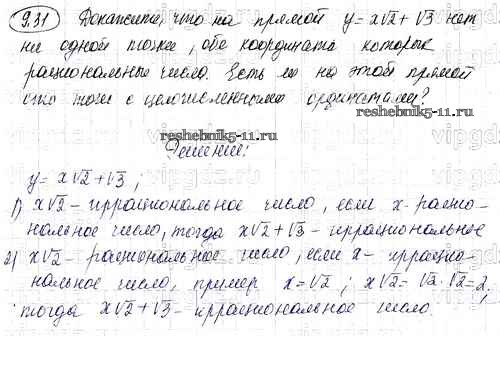 9.31 Докажите, что на прямой y = x√2 + √3 нет
ни одной точки, обе координаты которых
рациональные число. Есть ли на этой прямой
точки с целочисленными ординатами?
reshebnik5-11.ru
reshebnik5-11.ru
Решение:
y = x√2 + √3;
1) x√2 - иррациональное число, если x - рацио-
нальное число, тогда x√2 + √3 - иррациональное
2) x√2 - рациональное число, если x - иррацио-
нальное число, пример x = √2; x√2 = √2 · √2 = 2;
тогда x√2 + √3 - иррациональное число.